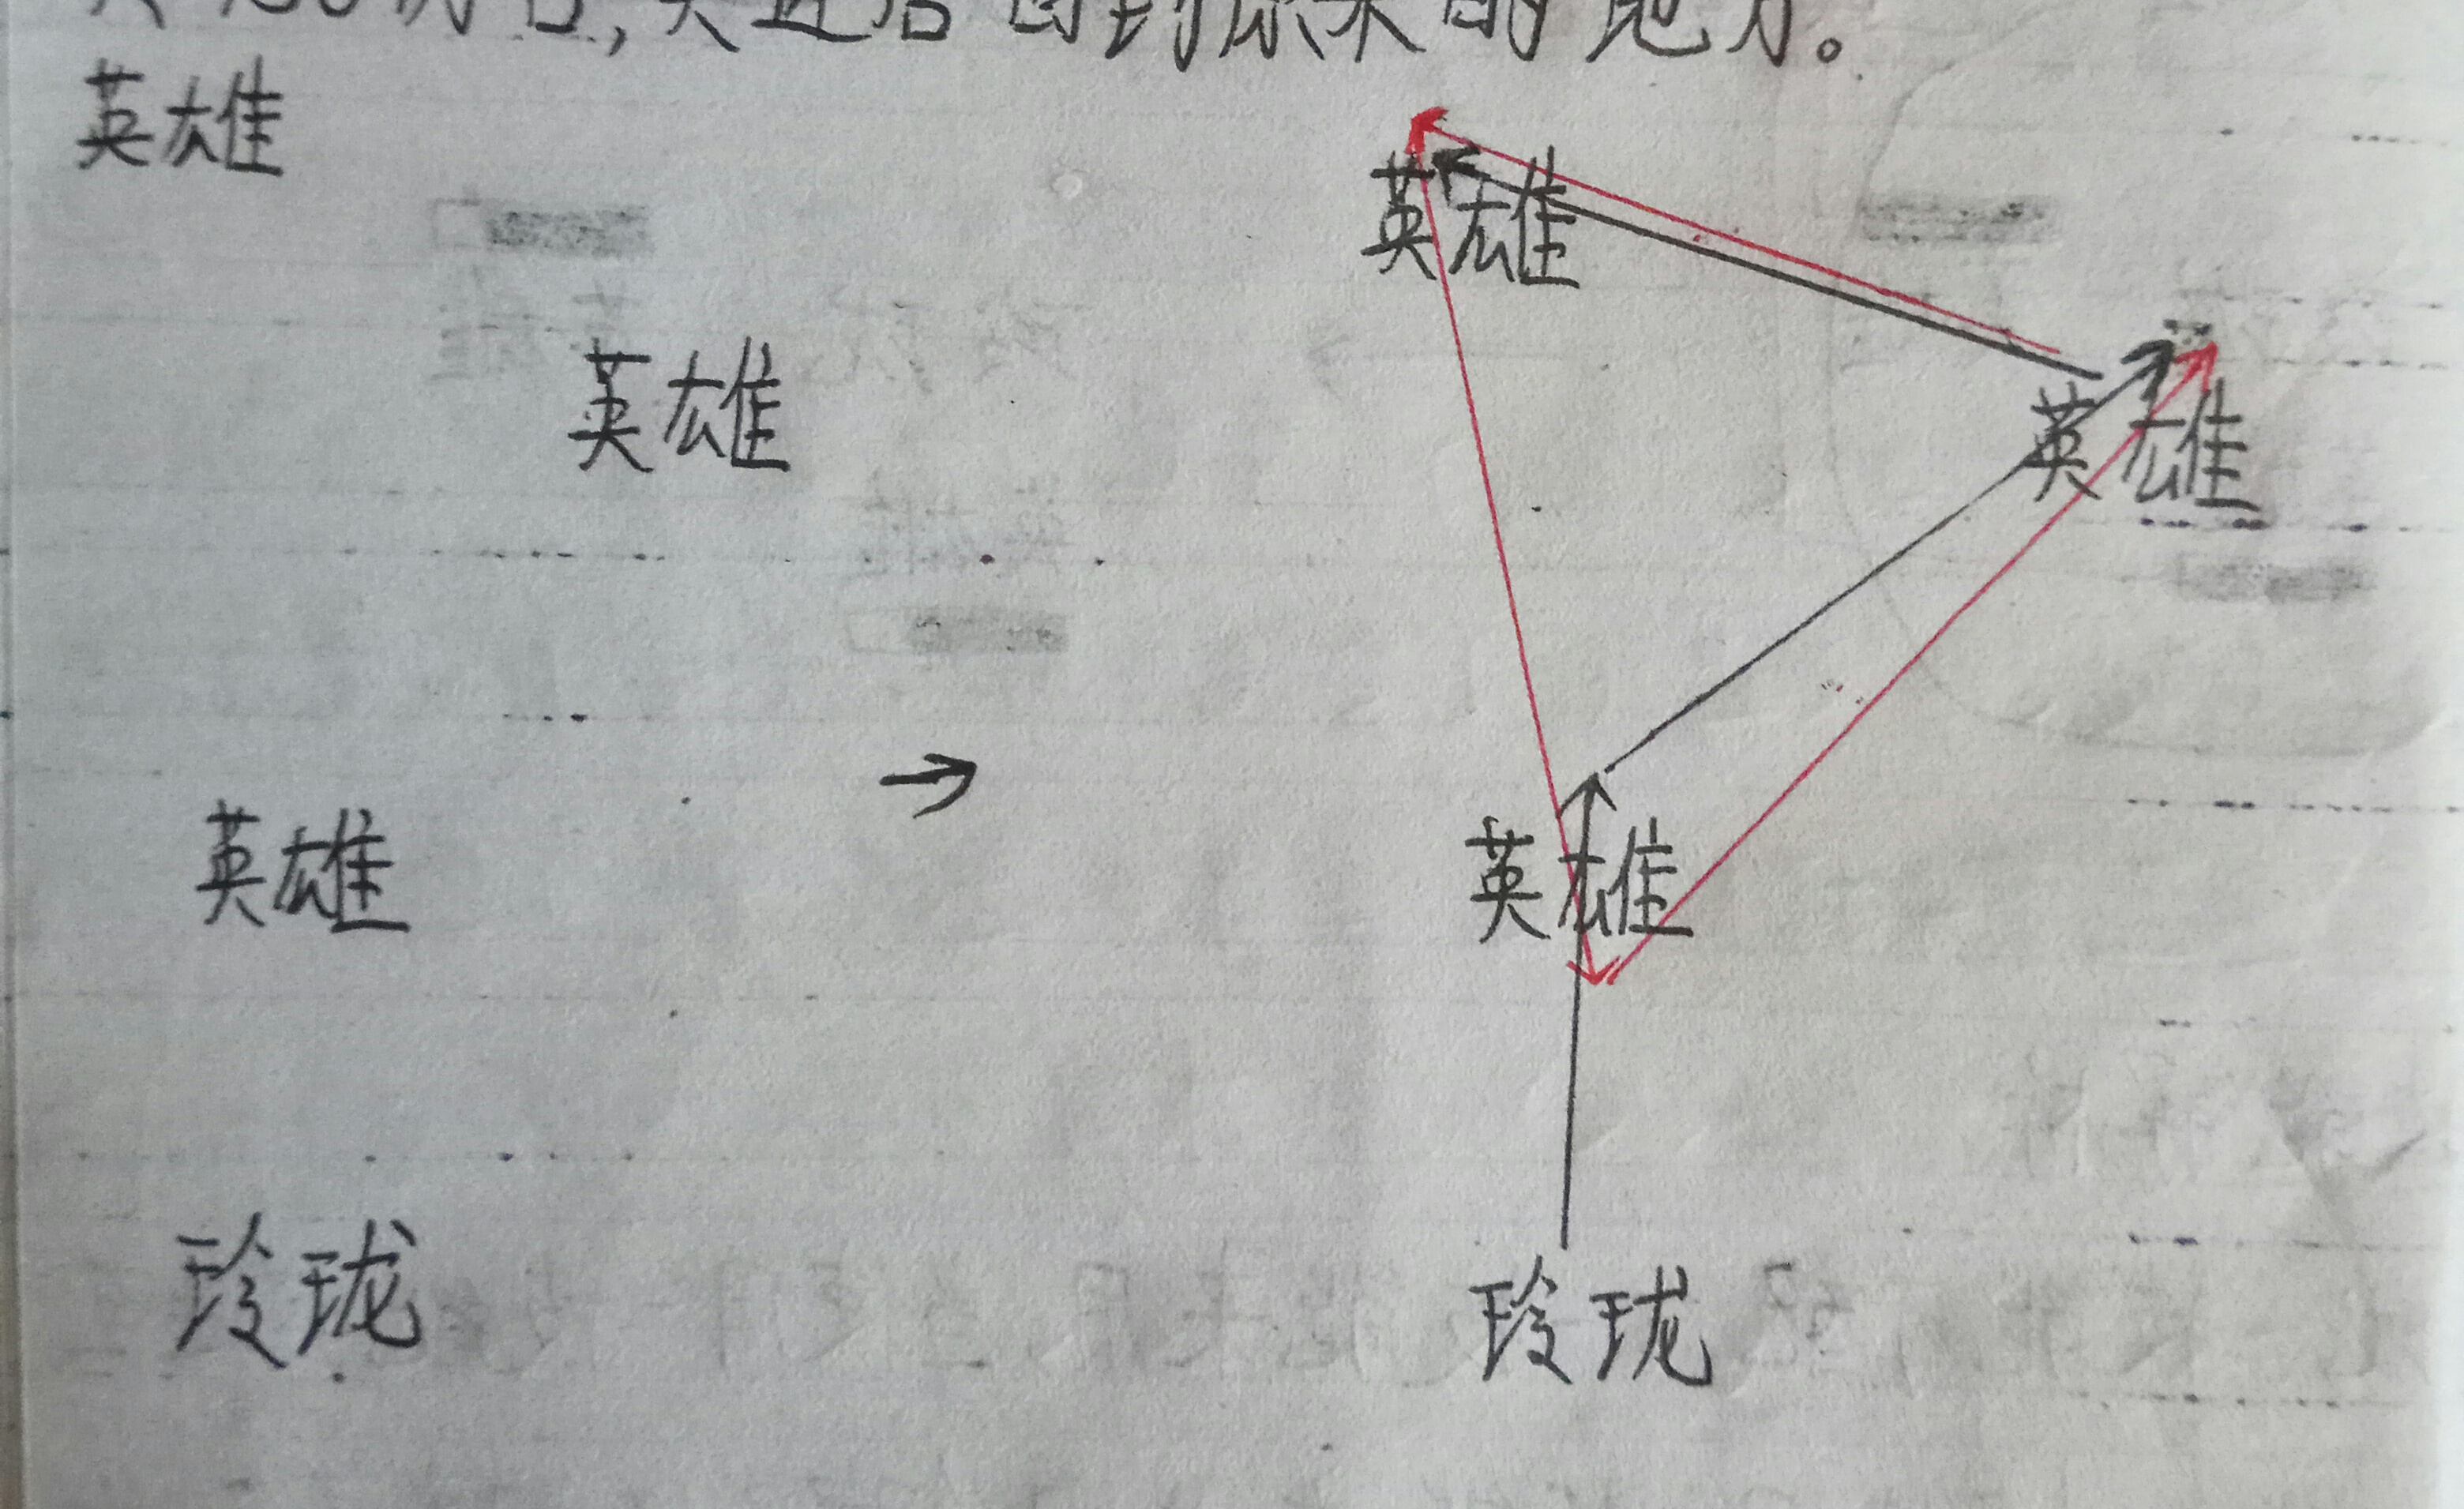 后回到原来的地方。
英雄
英雄
英雄
英雄
英雄
→
英雄
玲珑
玲珑